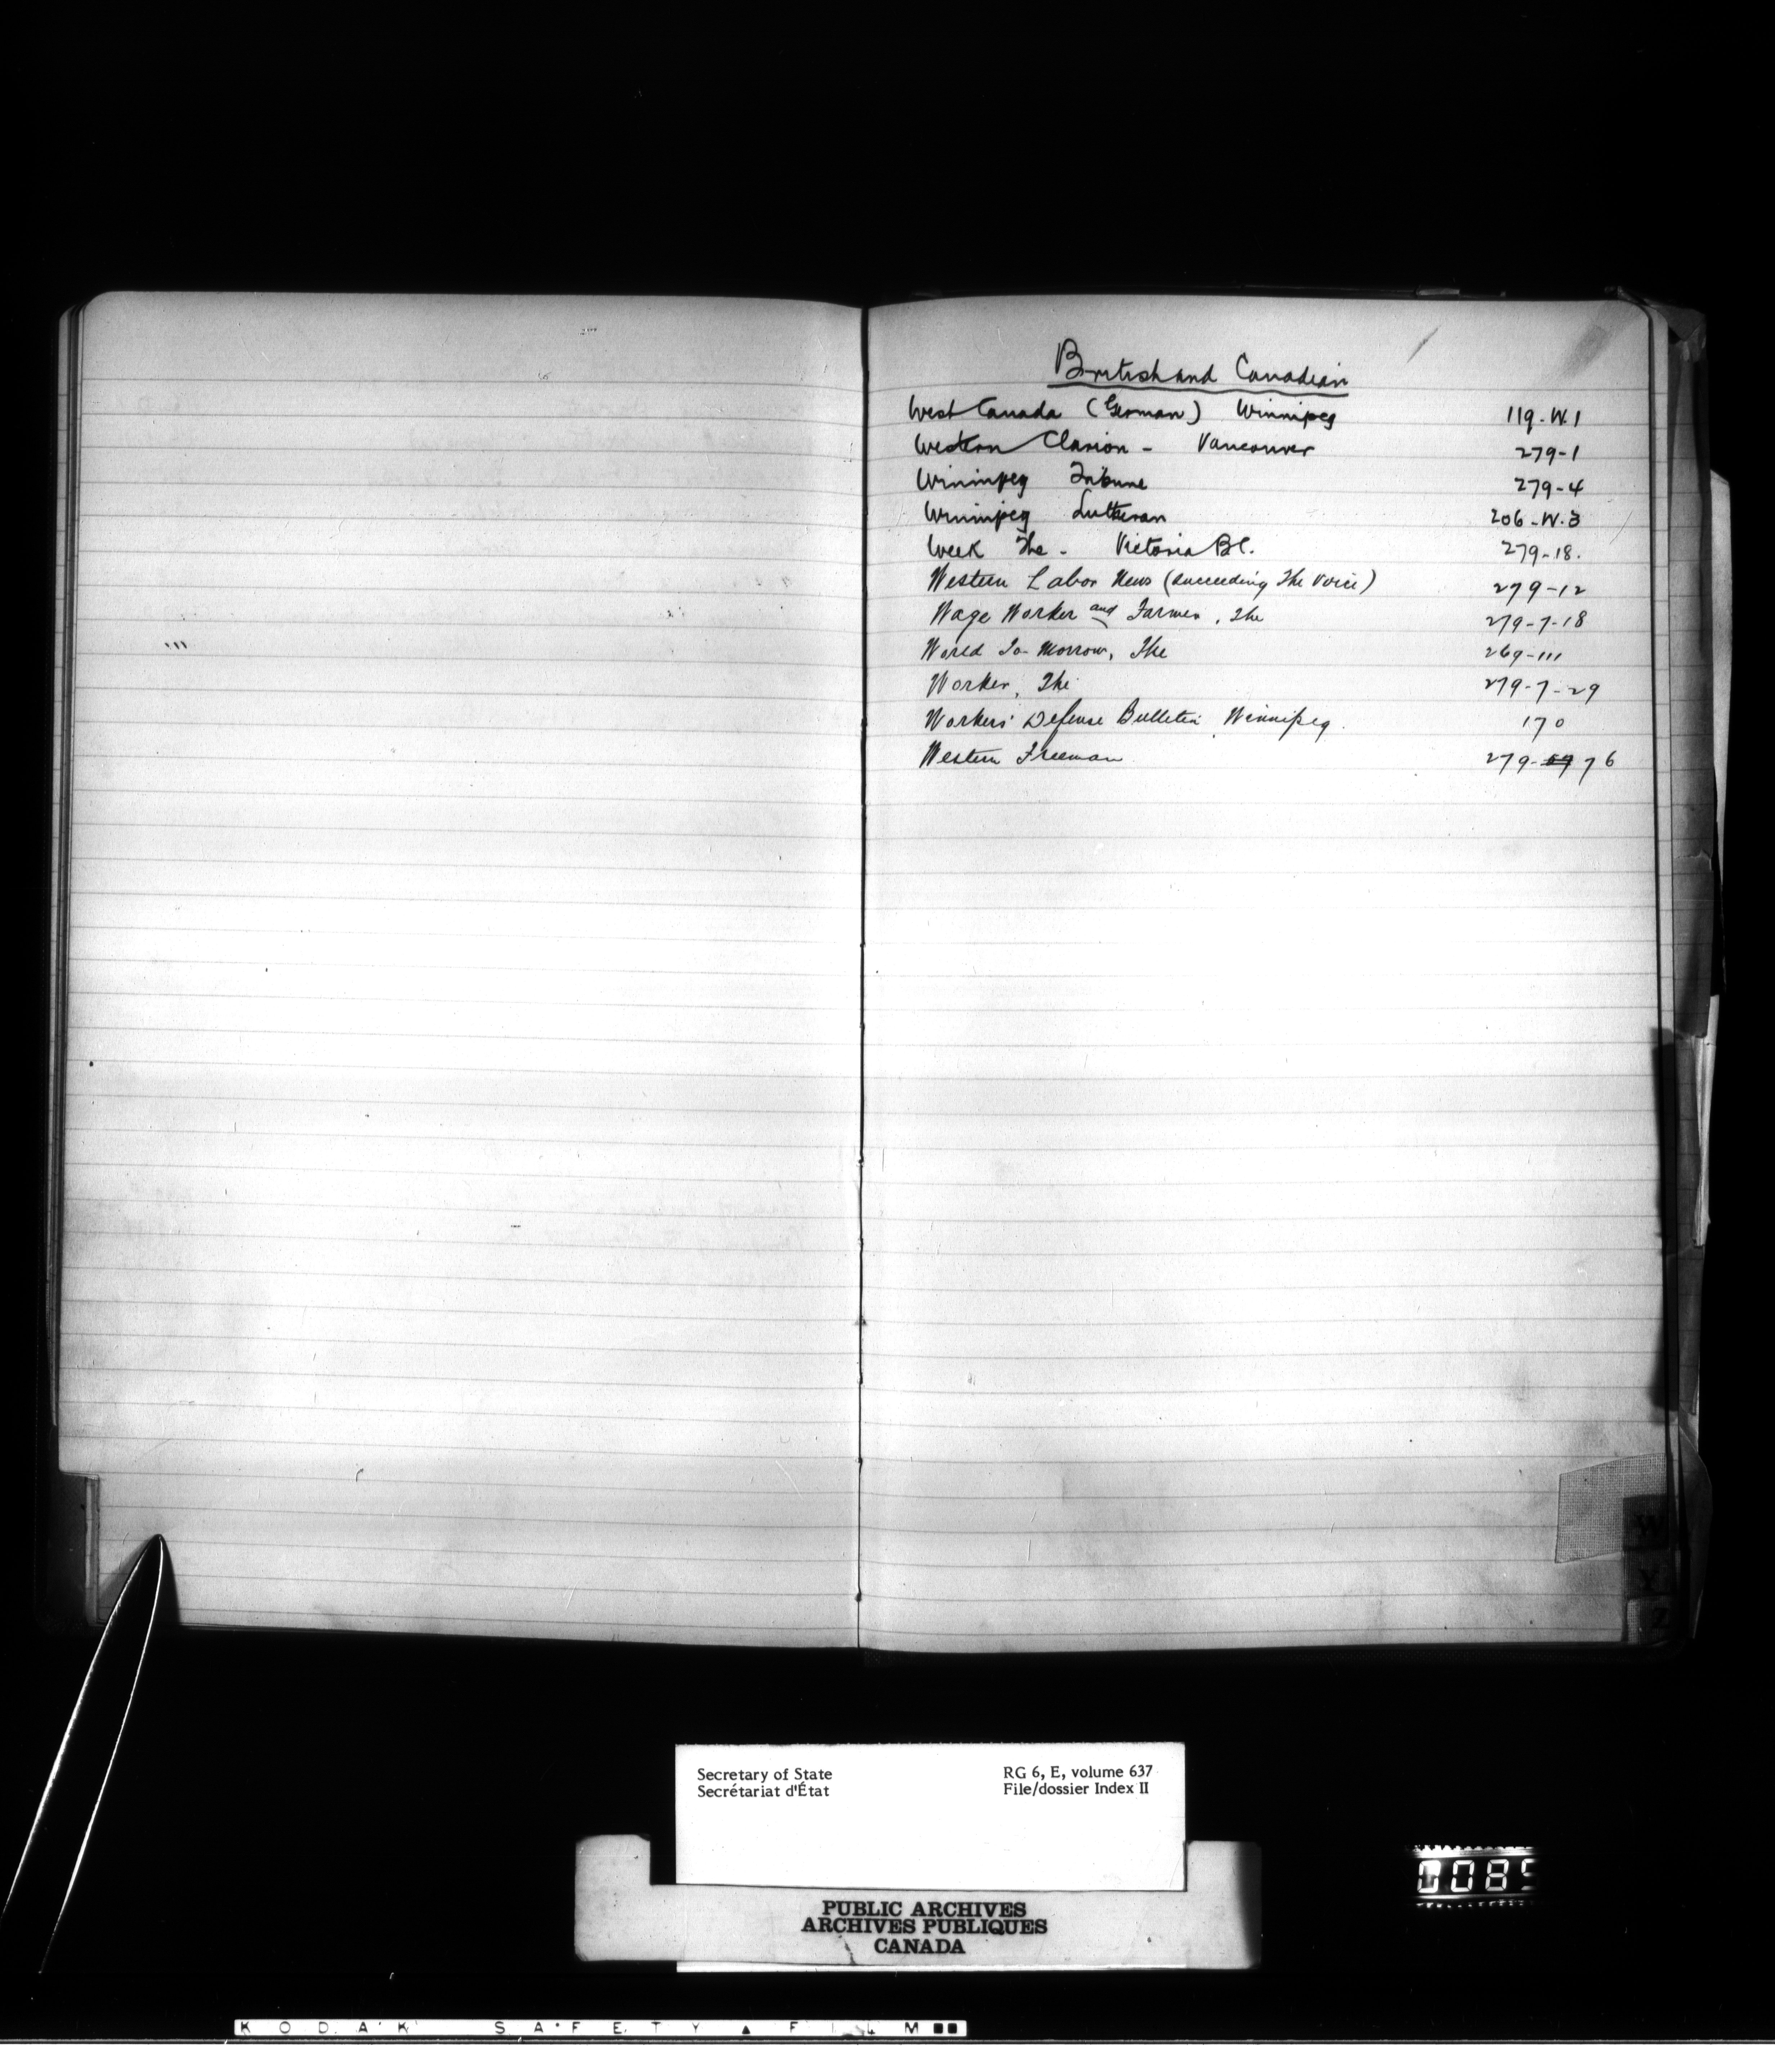 British and Canadian
West Canada (German) Winnipeg 119-W.1
Western Clarion - Vancouver 279-1
Winnipeg Tribune 279-4
Winnipeg Lutheran 206-W.3
Week The - Victoria B.C. 279-18.
Western Labor News (succeeding The Voice) 279-12
Wage Worker and Farmer, The 279-7-18
World To-Morrow, The 269-111
Worker, The 279-7-29
Workers' Defense Bulletin, Winnipeg. 170
Western Freeman 279-76
W
X
Z
Secretary of State RG 6, E, volume 637
Secrétariat d'État File/dossier Index II
PUBLIC ARCHIVES
ARCHIVES PUBLIQUES
CANADA
0085
KODAK SAFETY FILM